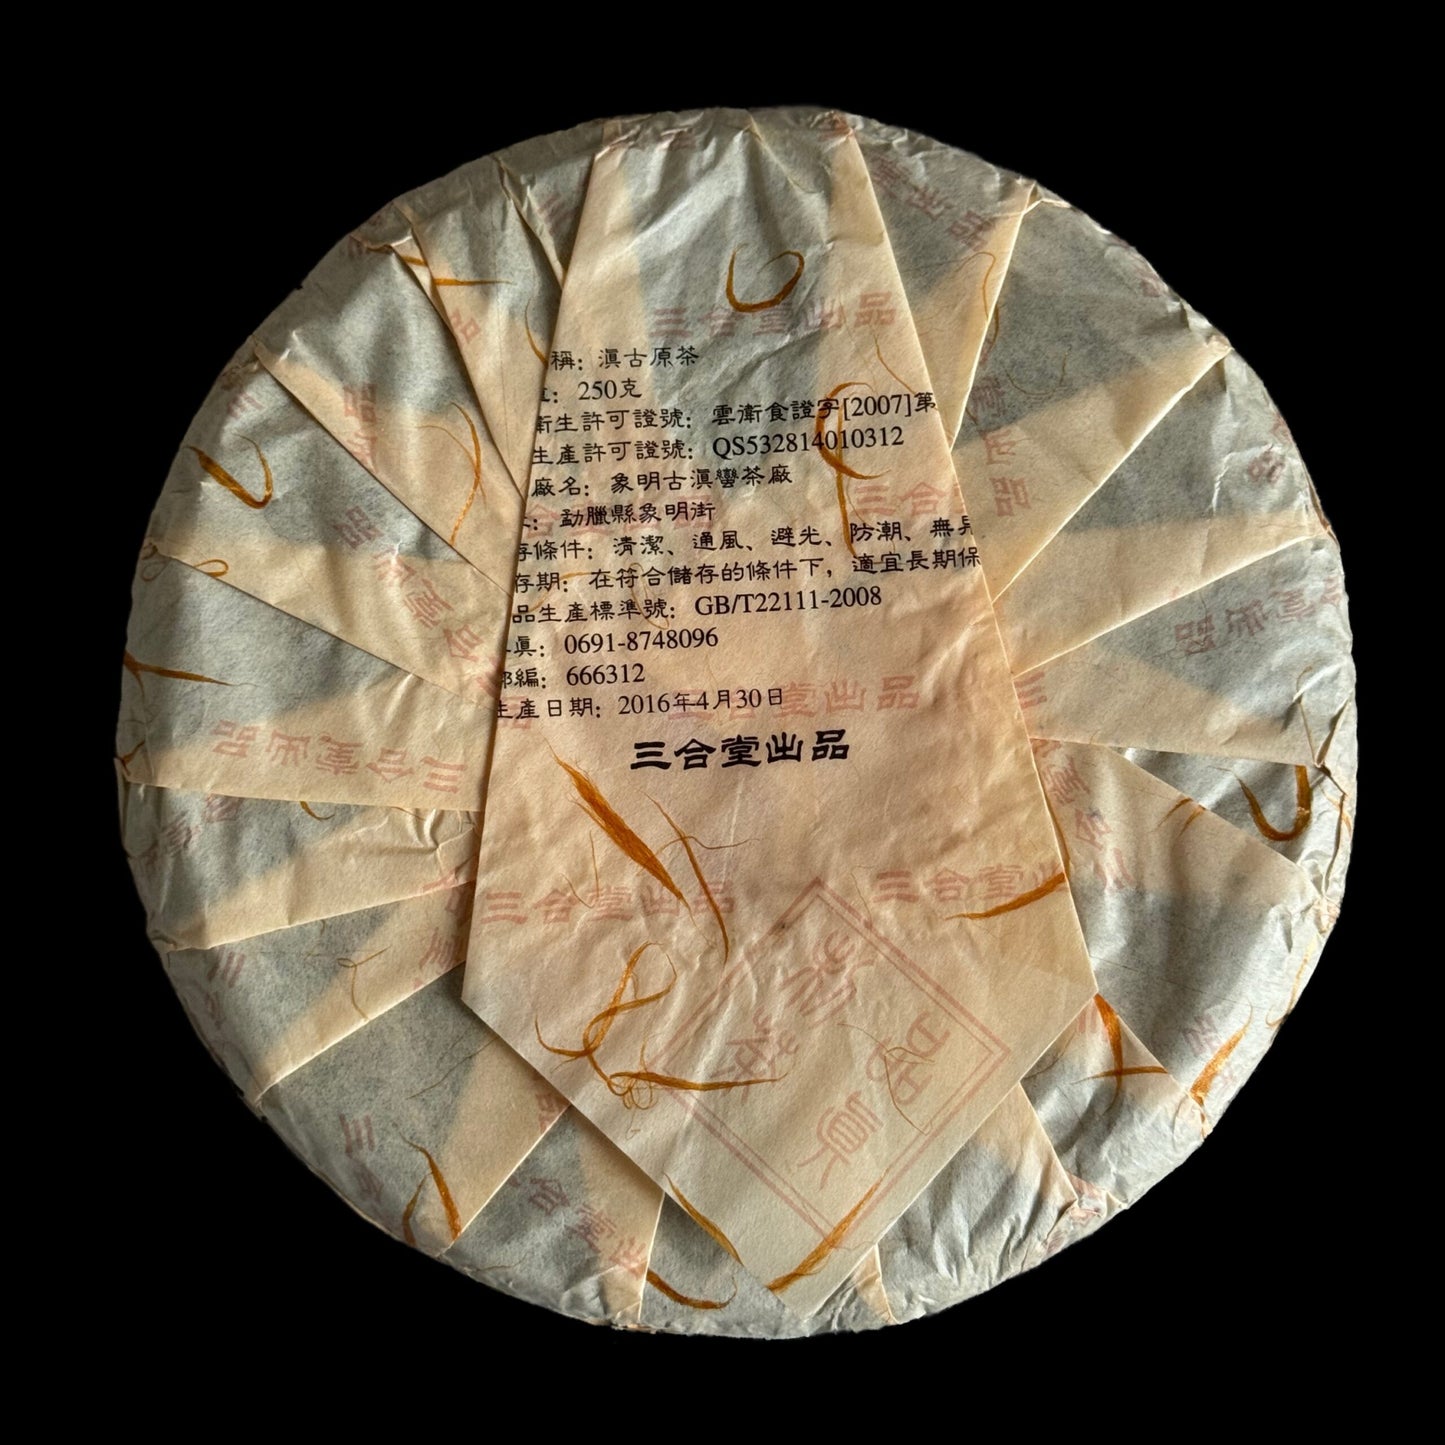 三合堂出品
稱：滇古原茶
：250克
衛生許可證號：雲衛食證字[2007]第
生產許可證號：QS532814010312
廠名：象明古滇蠻茶廠
：勐臘縣象明街
存條件：清潔、通風、避光、防潮、無異
存期：在符合儲存的條件下，適宜長期保
品生產標準號：GB/T22111-2008
真：0691-8748096
郵編：666312
生產日期：2016年4月30日
三合堂出品
三合堂出品
三合堂出品
三合堂出品
三合堂出